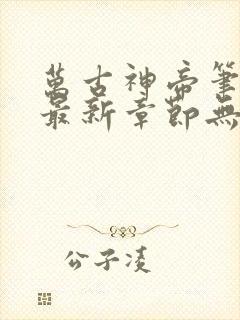 萬古神帝筆
最新章節無
公子凌